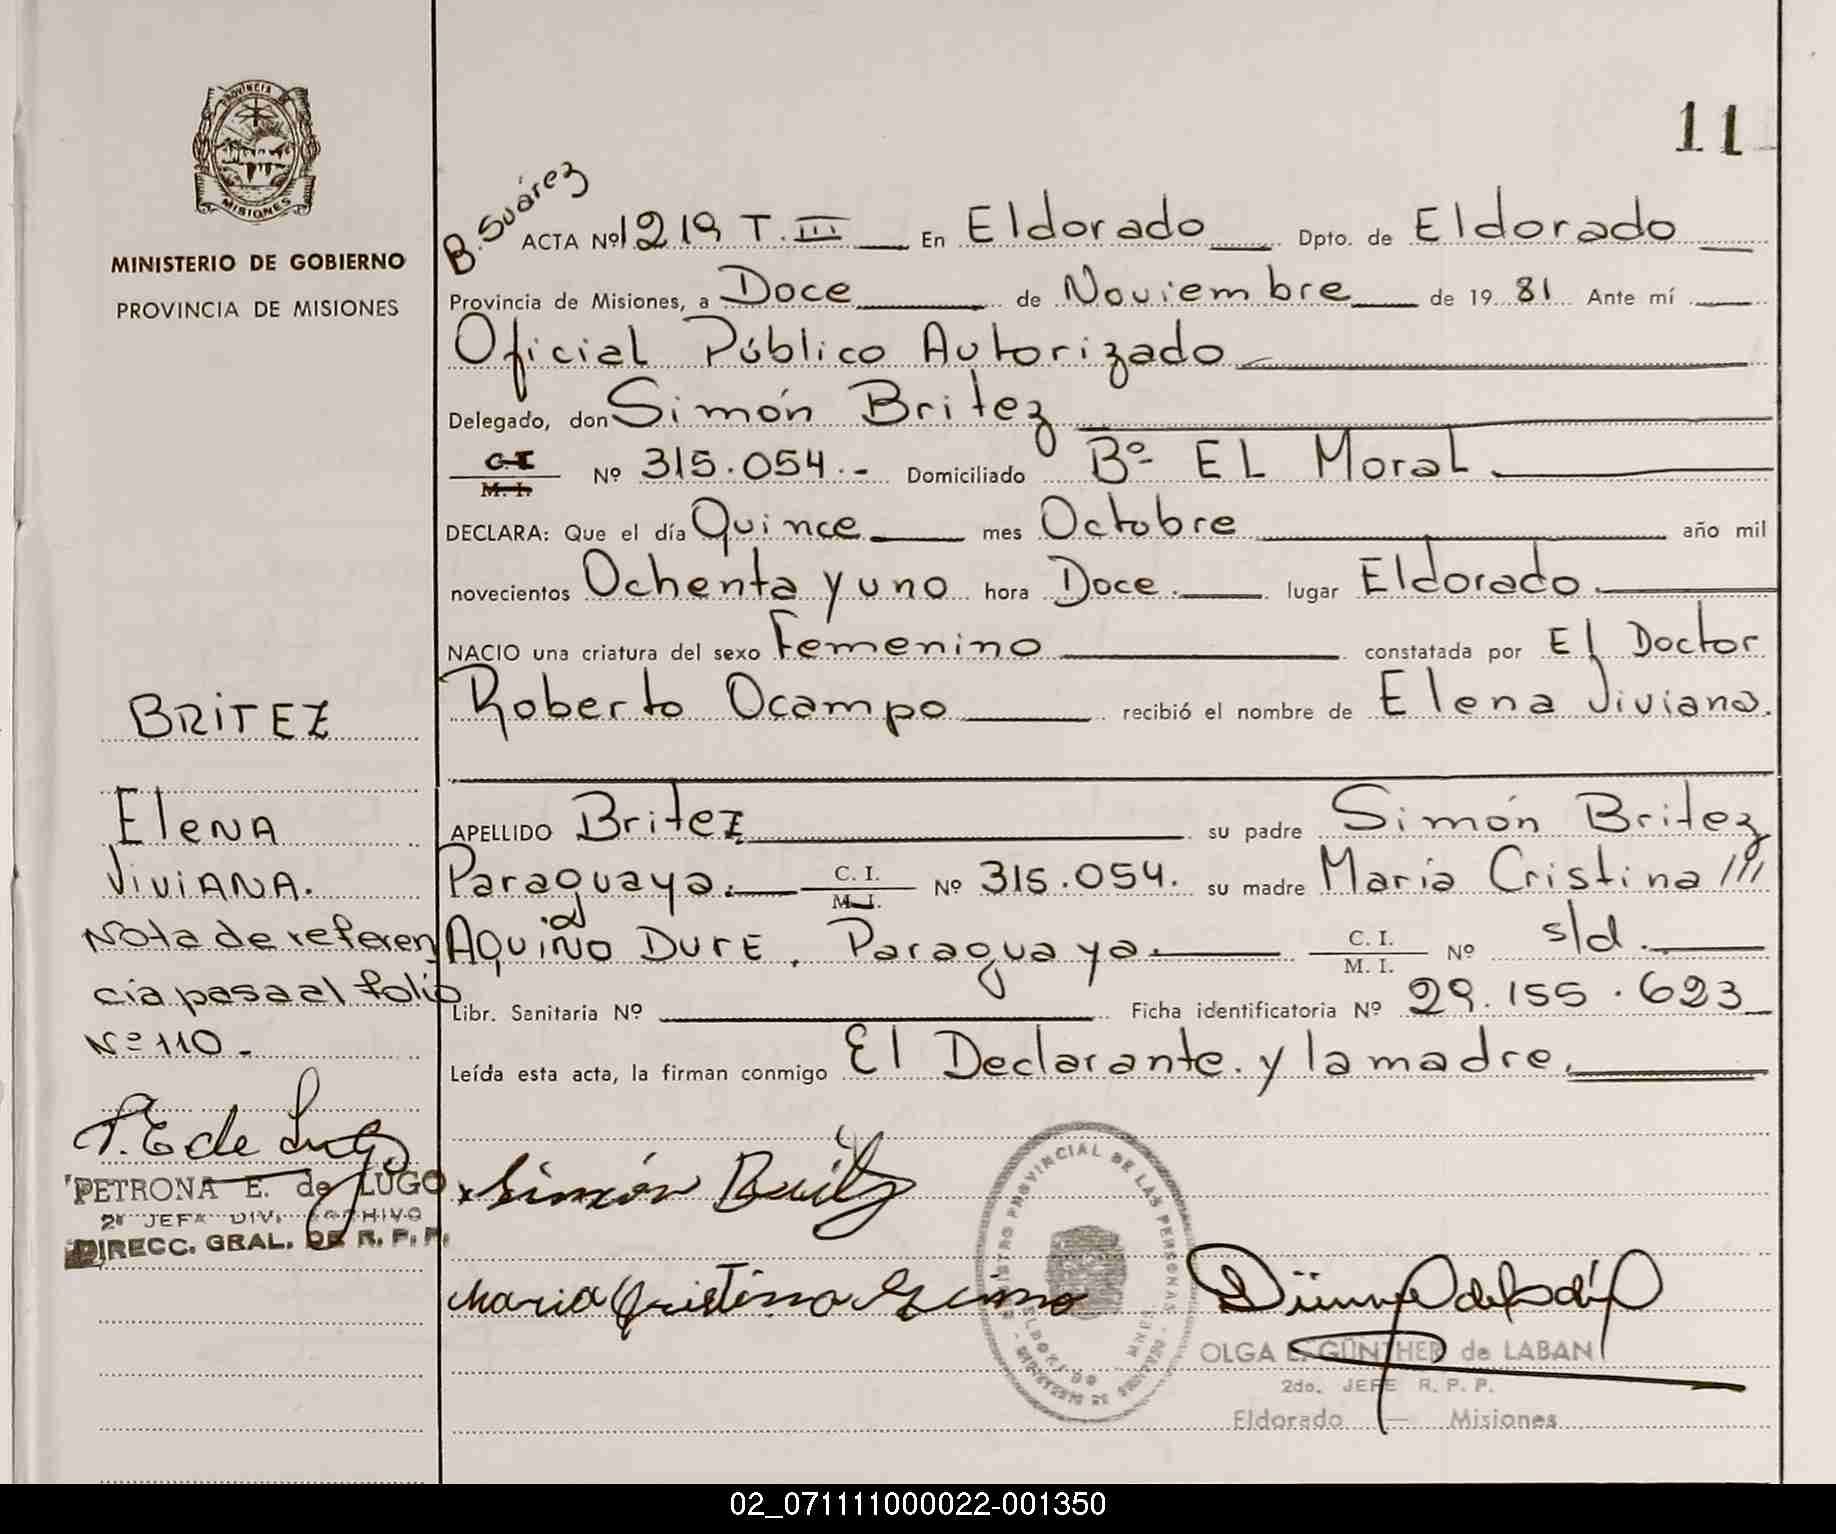 PROVINCIA DE
MISIONES
MINISTERIO DE GOBIERNO
PROVINCIA DE MISIONES
11
B. Suárez
ACTA Nº 1219 T. III En Eldorado Dpto. de Eldorado
Provincia de Misiones, a Doce de Noviembre de 19 81 Ante mí
Oficial Público Autorizado
Delegado, don Simón Britez
C.I
M. I. Nº 315.054.- Domiciliado Bº EL Moral
DECLARA: Que el día Quince mes Octubre año mil
novecientos Ochenta y uno hora Doce. lugar Eldorado.
NACIO una criatura del sexo Femenino constatada por El Doctor
Roberto Ocampo recibió el nombre de Elena Viviana.
APELLIDO Britez su padre Simón Britez
Paraguaya. C. I. M. I. Nº 315.054. su madre María Cristina
Aquino Dure. Paraguaya. C. I. M. I. Nº s/d.
Libr. Sanitaria Nº Ficha identificatoria Nº 29.155.623
Leída esta acta, la firman conmigo El Declarante. y la madre.
BRITEZ
Elena
Viviana.
Nota de referen
cia pasa al folio
Nº 110.
P. E de Lugo
PETRONA E. de LUGO
2º JEFA DIV. ARCHIVO
DIRECC. GRAL. DE R. P. P.
Simón Britez
Maria Cristina Aquino
REGISTRO PROVINCIAL DE LAS PERSONAS
ELDORADO
MISIONES
OLGA L. GÜNTHER de LABAN
2do. JEFE R. P. P.
Eldorado — Misiones
02_071111000022-001350